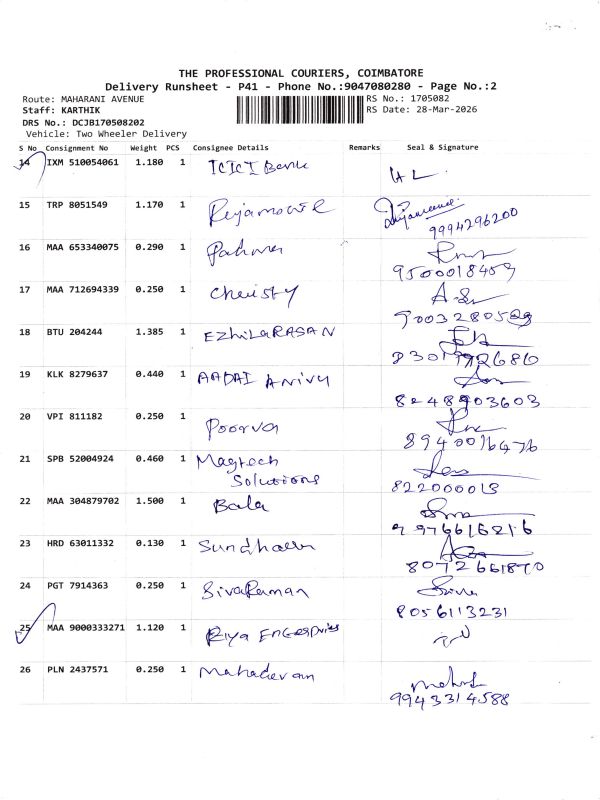 THE PROFESSIONAL COURIERS, COIMBATORE
Delivery Runsheet - P41 - Phone No.:9047080280 - Page No.:2
Route: MAHARANI AVENUE RS No.: 1705082
Staff: KARTHIK RS Date: 28-Mar-2026
DRS No.: DCJB170508202
Vehicle: Two Wheeler Delivery
S No Consignment No Weight PCS Consignee Details Remarks Seal & Signature
14 IXM 510054061 1.180 1 ICICI Bank
15 TRP 8051549 1.170 1
9994296200
16 MAA 653340075 0.290 1 Padma
9500018459
17 MAA 712694339 0.250 1 Christy
18 BTU 204244 1.385 1 EZhiLaRASAN
19 KLK 8279637 0.440 1 AADAI
8248903603
20 VPI 811182 0.250 1 Poorva
8940076476
21 SPB 52004924 0.460 1 Magtech
Solutions
822000013
22 MAA 304879702 1.500 1 Bala
9976616216
23 HRD 63011332 0.130 1
8072661870
24 PGT 7914363 0.250 1 SivaRaman
8056113231
25 MAA 9000333271 1.120 1 Riya Enterprises
26 PLN 2437571 0.250 1 Mahadevan
9943314588